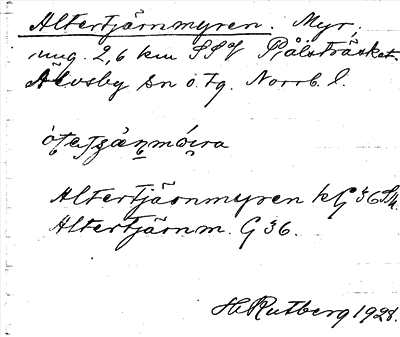 Altertjärnmyren. Myr,
ung. 2,6 km SSV Pjålsträsket.
Älvsby sn o. tg. Norrb. l.
Altertjärnmyren kG 36
Altertjärnm. G 36.
H Rutberg 1928.